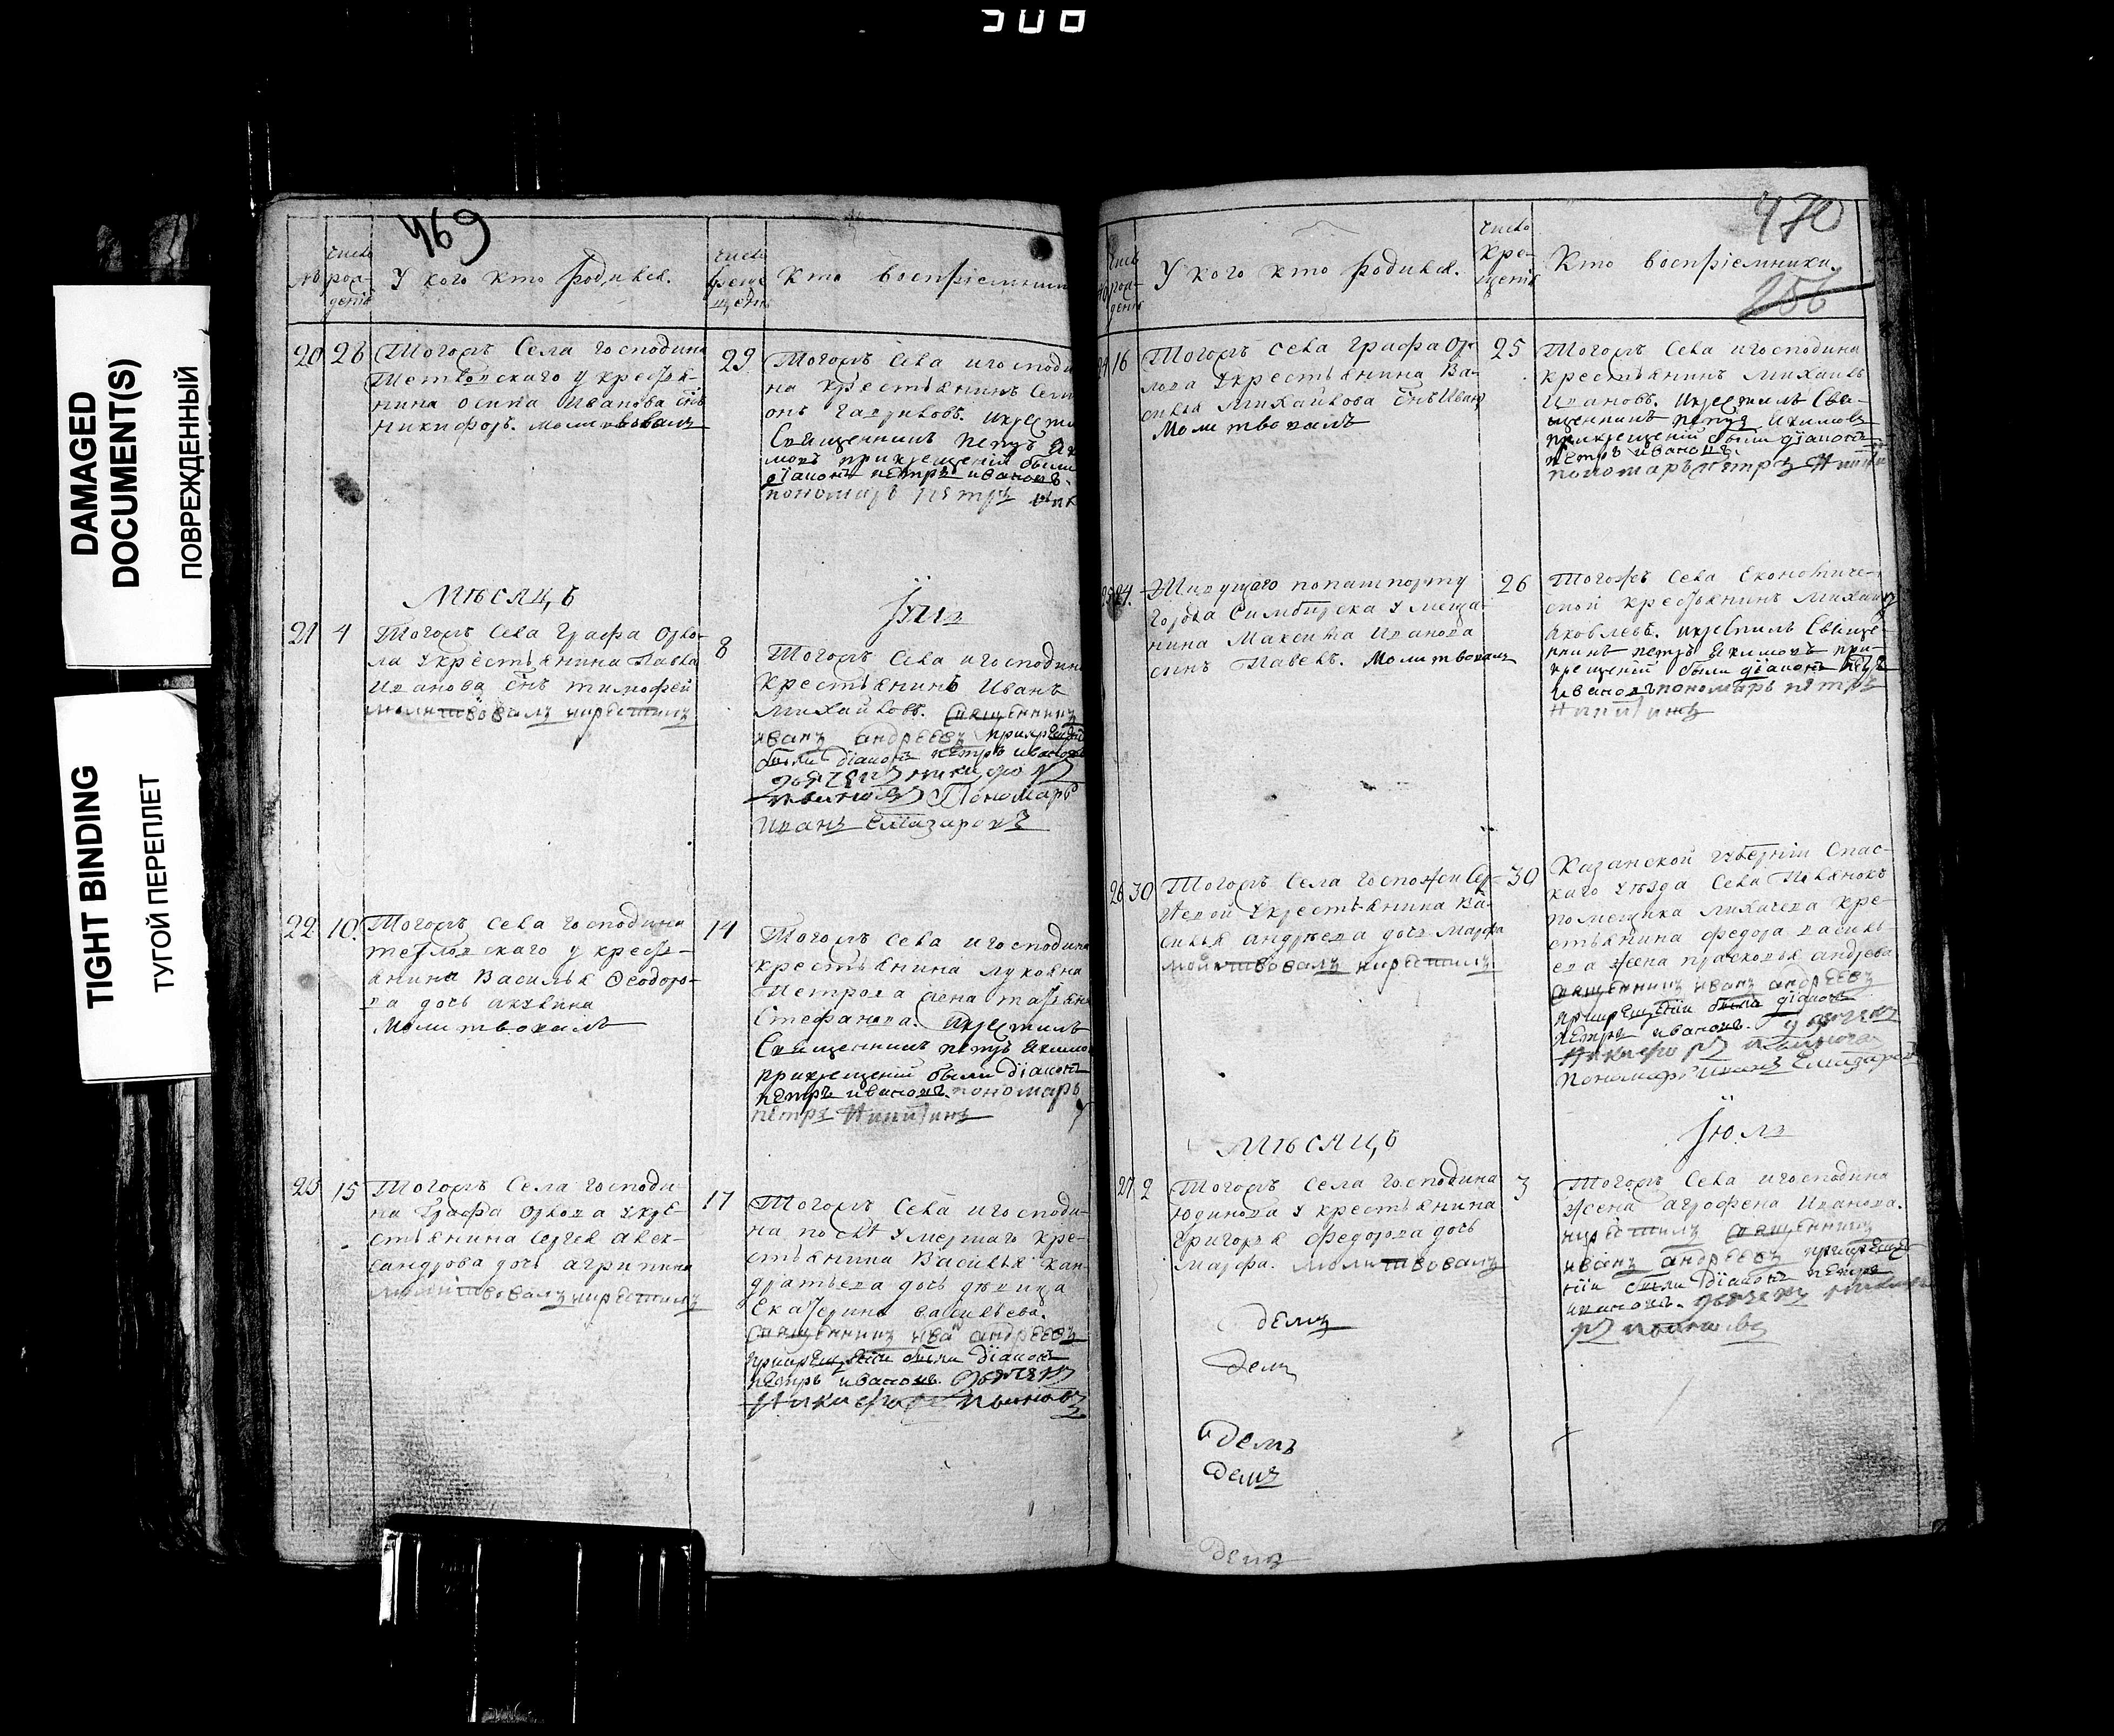 DAMAGED
DOCUMENT(S)
ПОВРЕЖДЕННЫЙ
TIGHT BINDING
ТУГОЙ ПЕРЕПЛЕТ
469
число рож-дения
У кого кто родился.
число креще
Кто восприемники
20 28
Тогожъ Села господина
у кресть-
янина Осипа Иванова снъ
Никифоръ. молитвовалъ
29
Тогожъ Села и господи
на крестьянинъ Сем
онъ Гавриловъ. и крести
Священникъ Петръ Яки
мовъ при крещении были
діаконъ петръ ивановъ.
пономарь петръ
Мѣсяцъ
Іюль
21 4
Тогожъ Села Графа Орло-
ва у крестьянина Павла
Иванова снъ тимофей
молитвовалъ и крестилъ
8
Тогожъ Села и господина
крестьянинъ Иванъ
Михайловъ. Священникъ
иванъ андреевъ при креще
были діаконъ петръ ивановъ
дьячекъ никифоръ
Пономарь
Иванъ Елизаровъ
22 10.
Тогожъ Села господина
у кресть-
янина Василья Ѳеодоро-
ва дочь акулина
Молитвовалъ
14
Тогожъ Села и господина
крестьянина лукояна
Петрова жена татьяна
Стефанова. и крестилъ
Священникъ петръ Якимо
при крещении были діаконъ
петръ ивановъ. пономарь
петръ Никитинъ
23 15
Тогожъ Села господи-
на Графа Орлова у кре-
стьянина Сергея алек-
сандрова дочь агрипина
молитвовалъ и крестилъ
17
Тогожъ Села и господи-
на после умершаго кре-
стьянина Василья кан-
дратьева дочь девица
Екатерина васильева.
Священникъ иванъ андреевъ
при крещении были діаконъ
петръ ивановъ. дьячекъ
Никифоръ
470
256
У кого кто родился.
число кре-щения
Кто восприемники.
24 16
Тогожъ Села графа Ор-
лова у крестьянина Ва-
силья Михайлова снъ Иванъ
Молитвовалъ
25
Тогожъ Села и господина
крестьянинъ Михаилъ
Ивановъ. и крестилъ Свя-
щенникъ петръ Якимовъ
при крещении были діаконъ
петръ ивановъ.
пономарь петръ
25 24.
Живущаго по пашпорту
города Симбирска у меща-
нина Максима Иванова
сынъ Павелъ. Молитвовалъ
26
Тогожъ Села Економиче-
ской крестьянинъ Михаилъ
Яковлевъ. и крестилъ Свяще-
нникъ петръ Якимовъ при
крещении были діаконъ петръ
ивановъ пономарь петръ
Никитинъ
26 30
Тогожъ Села госпожи
у крестьянина Ва-
силья андреева дочь Марфа
молитвовалъ и крестилъ
30
Казанской губернии Спас-
каго уезда Села
помещика лихачева кре-
стьянина федора василь-
ева жена прасковья андреева
Священникъ иванъ андреевъ
при крещении были діаконъ
петръ ивановъ. дьячекъ
Никифоръ
Пономарь Иванъ Елизаровъ
Мѣсяцъ
Іюль
27 2
Тогожъ Села господина
Юдинова у крестьянина
Григорья Федорова дочь
Марфа. молитвовалъ
3
Тогожъ Села и господина
жена агрофена Иванова.
и крестилъ Священникъ
иванъ андреевъ при креще
нии были діаконъ петръ
ивановъ. дьячекъ никифо
ръ